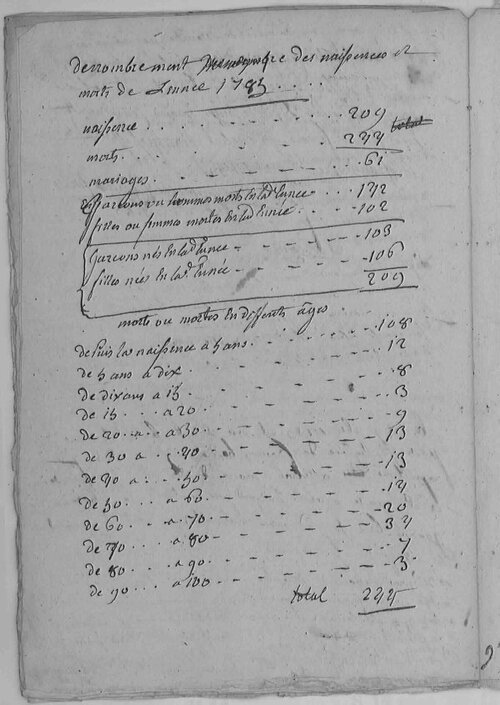 denombrement des naissences et
morts de Lannee 1783 . . . .
naissence . . . . - - - 209
morts . . . . - - - 244 total
mariages . - - - 61
garcons ou hommes morts En lad. Ennee . . . . 142
filles ou femmes mortes En lad. Ennée . . . . 102
garcons nés En lad. Ennée - - - - 103
filles nées En lad. Ennée - - - - 106
209
morts ou mortes En differents âges .
depuis la naissence a 5 ans . - - - 108
de 5 ans a dix . - - - 12
de dix ans a 15 . - - - 8
de 15 . . . a 20 . - - - 3
de 20 . . . a 30 . - - - 9
de 30 a . . . 40 - - - 13
de 40 a . . . 50 - - - 13
de 50 . . . a 60 - - - 14
de 60 . . . a 70 - - - 20
de 70 . . . a 80 - - - 34
de 80 . . . a 90 . - - - 7
de 90 . . . a 100 - - - 3
total 244